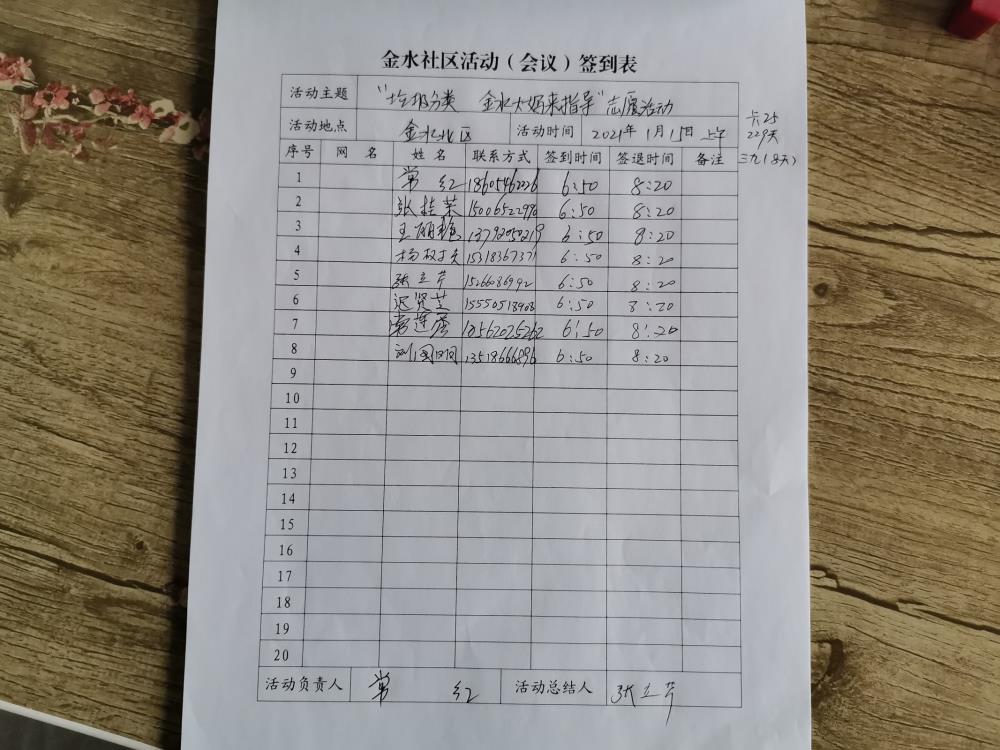 金水社区活动（会议）签到表
活动主题 “垃圾分类 金水大妈来指导”志愿活动
活动地点 金水北区 活动时间 2021年1月15日上午
卡25
229天
三九(8天)
序号 网名 姓名 联系方式 签到时间 签退时间 备注
1 常红 6:50 8:20
2 张桂荣 6:50 8:20
3 王丽艳 6:50 8:20
4 6:50 8:20
5 张立芹 6:50 8:20
6 迟贤芝 6:50 8:20
7 6:50 8:20
8 刘国明 13518666896 6:50 8:20
9
10
11
12
13
14
15
16
17
18
19
20
活动负责人 常红 活动总结人 张立芹